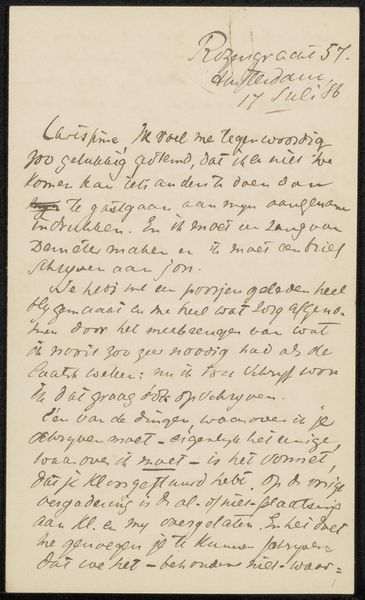 Rozengracht 57.
Amsterdam,
17 Juli 86
Chrispine, Ik voel me tegenwoordig
zoo gelukkig gestemd, dat ik er niet toe
komen kan iets anders te doen dan
te gastgaan aan mijn aangename
indrukken. En ik moet een zang van
Demeter maken en ik moet een brief
schrijven aan jou.
Je hebt me een poosjen geleden heel
blij gemaakt en me heel wat zorg afgeno-
men door het meebrengen van wat
ik nooit zoo zeer noodig had als de
laatste weken: nu ik toch schrijf wou
ik dat graag óók opschrijven.
Één van de dingen, waarover ik je
schrijven moet - eigenlijk het eenige,
waarover ik moet - is het vonnis,
dat je Kloos gestuurd hebt. Op de vorige
vergadering is de al- of niet-plaatsing
aan Kl. en mij overgelaten. En het doet
me genoegen je te kunnen schrijven
dat we het - behoudens niet-waar-